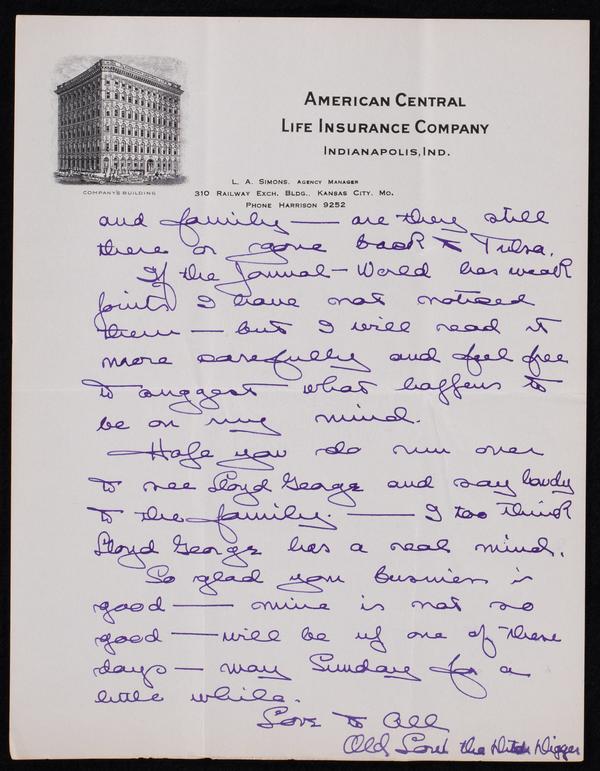 AMERICAN CENTRAL
LIFE INSURANCE COMPANY
INDIANAPOLIS, IND.
COMPANY'S BUILDING
L. A. SIMONS, AGENCY MANAGER
310 RAILWAY EXCH. BLDG., KANSAS CITY, MO.
PHONE HARRISON 9252
and family — are they still
there or gone back to Tulsa.
If the Journal-World has weak
joints I have not noticed
them — but I will read it
more carefully and feel free
to suggest what happens to
be on my mind.
Hope you do run over
to see Lloyd George and say howdy
to the family. — I too think
Lloyd George has a real mind.
So glad you business is
good — mine is not so
good — will be up one of these
days — may Sunday for a
little while.
Love to All
Old the Ditch Digger